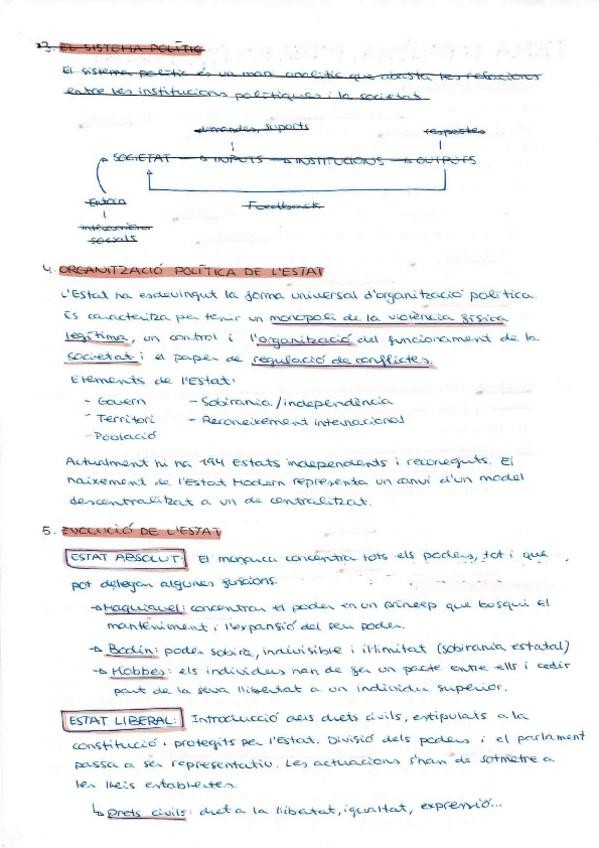 3. EL SISTEMA POLÍTIC
El sistema polític és un marc analític que abasta les relacions
entre les institucions polítiques i la societat.
demandes, suports respostes
SOCIETAT → INPUTS → INSTITUCIONS → OUTPUTS
Entorn Feedback
socials
4. ORGANITZACIÓ POLÍTICA DE L'ESTAT
L'Estat ha esdevingut la forma universal d'organització política.
Es caracteritza per tenir un monopoli de la violència física
legítima, un control i l'organització del funcionament de la
societat i el paper de regulació de conflictes.
Elements de l'Estat:
- Govern - Sobirania/independència
- Territori - Reconeixement internacional
- Població
Actualment hi ha 194 Estats independents i reconeguts. El
naixement de l'Estat Modern representa un canvi d'un model
descentralitzat a un de centralitzat.
5. EVOLUCIÓ DE L'ESTAT
ESTAT ABSOLUT: El monarca concentra tots els poders, tot i que
pot delegar algunes funcions.
→ Maquiavel: concentrar el poder en un príncep que busqui el
manteniment i l'expansió del seu poder.
→ Bodin: poder sobirà, indivisible i il·limitat (sobirania estatal)
→ Hobbes: els individus han de fer un pacte entre ells i cedir
part de la seva llibertat a un individu superior.
ESTAT LIBERAL: Introducció dels drets civils, estipulats a la
constitució i protegits per l'Estat. Divisió dels poders i el parlament
passa a ser representatiu. Les actuacions s'han de sotmetre a
les lleis establertes.
↳ Drets civils: dret a la llibertat, igualtat, expressió...